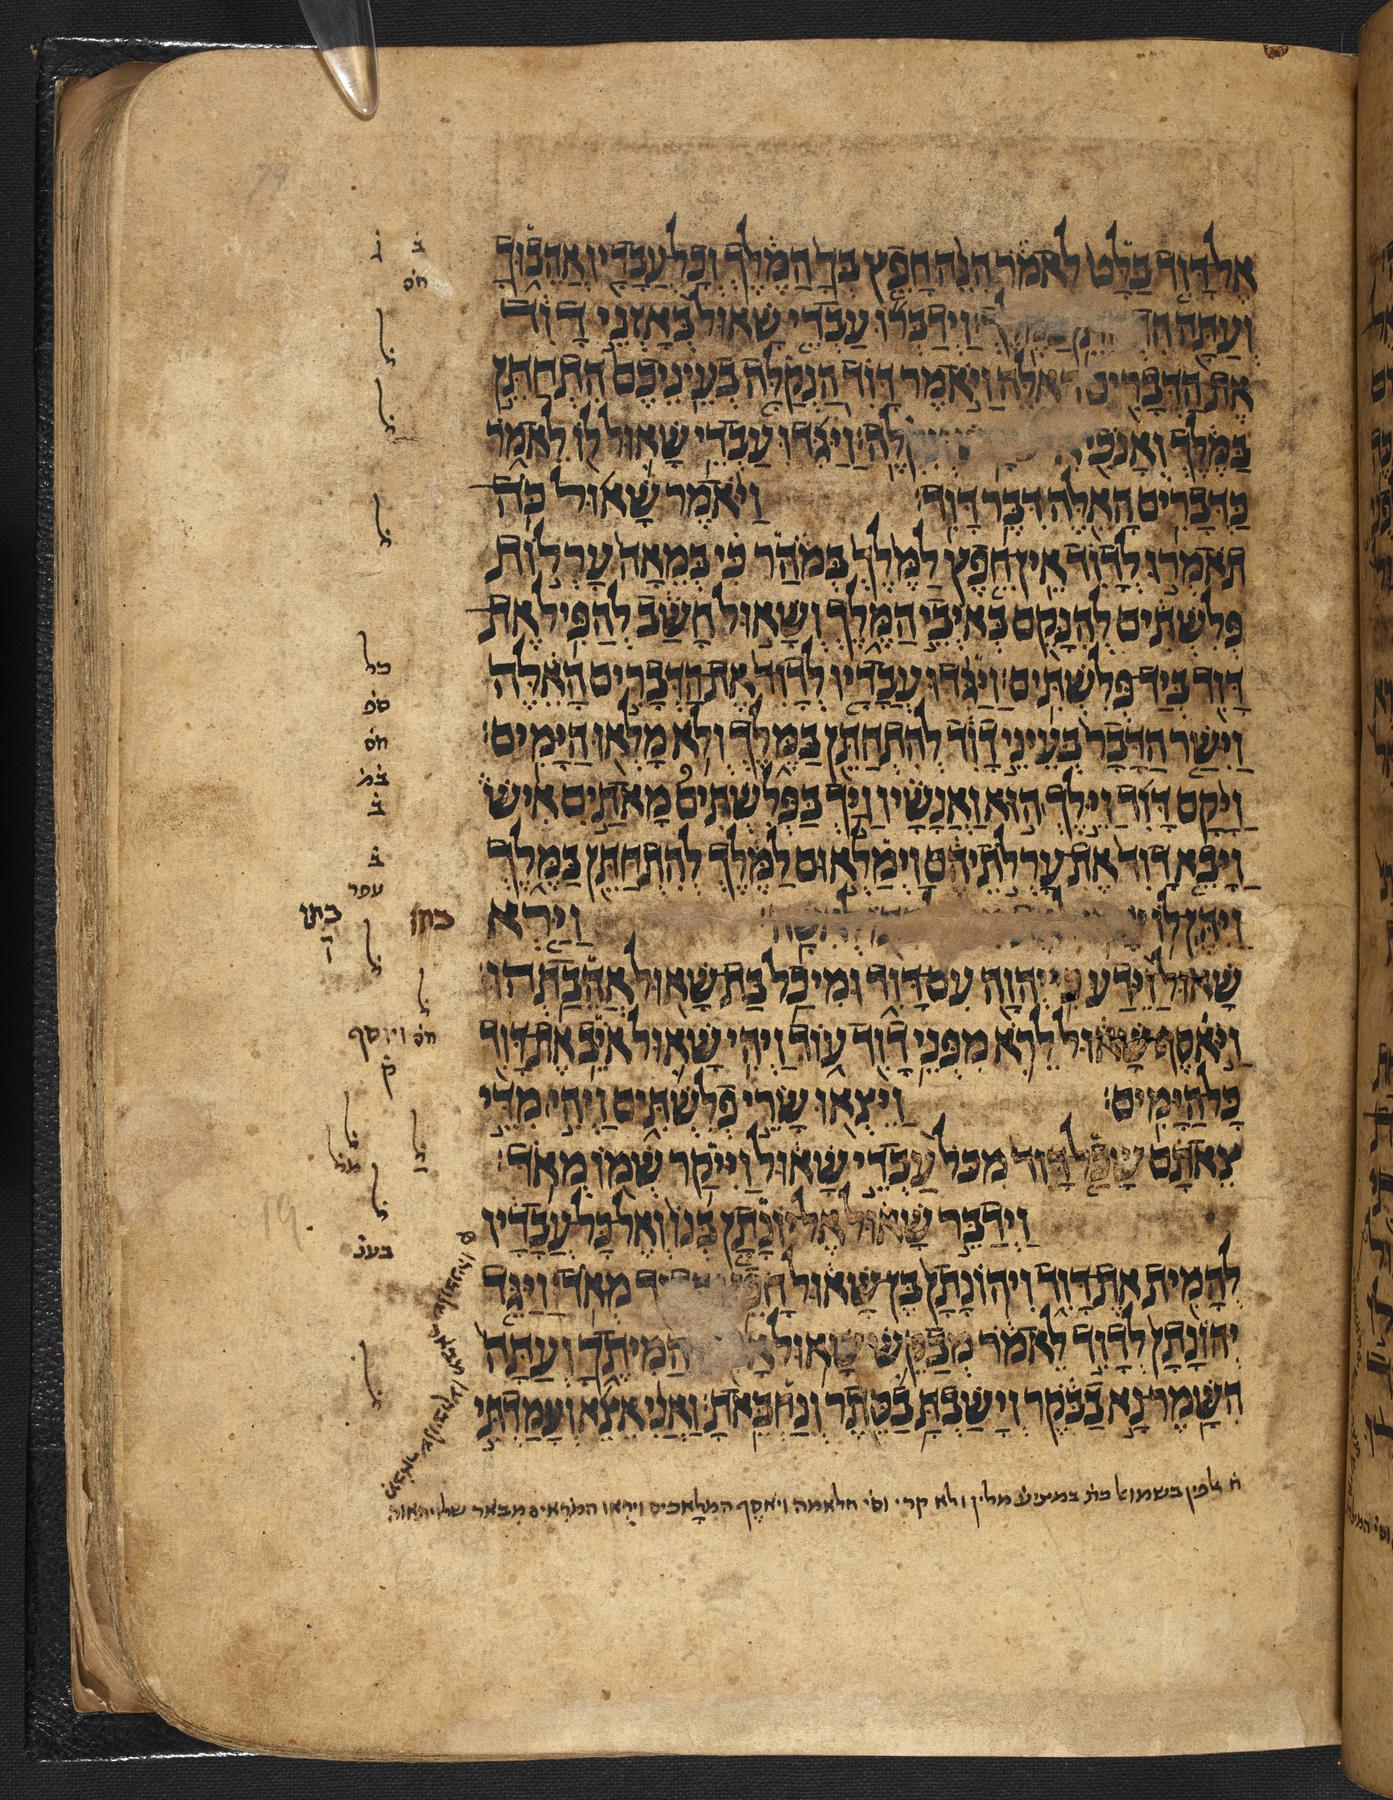 אֶל דָּוִד בַּלָּט לֵאמֹר הִנֵּה חָפֵץ בְּךָ הַמֶּלֶךְ וְכָל עֲבָדָיו אֲהֵבוּךָ
וְעַתָּה בַּמֶּלֶךְ׃ וַיְדַבְּרוּ עַבְדֵי שָׁאוּל בְּאָזְנֵי דָוִד
אֶת הַדְּבָרִים הָאֵלֶּה וַיֹּאמֶר דָּוִד הַנְקַלָּה בְעֵינֵיכֶם הִתְחַתֵּן
בַּמֶּלֶךְ וְאָנֹכִי וְנִקְלֶה׃ וַיַּגִּדוּ עַבְדֵי שָׁאוּל לוֹ לֵאמֹר
כַּדְּבָרִים הָאֵלֶּה דִּבֶּר דָּוִד׃ וַיֹּאמֶר שָׁאוּל כֹּה
תֹאמְרוּ לְדָוִד אֵין חֵפֶץ לַמֶּלֶךְ בְּמֹהַר כִּי בְּמֵאָה עָרְלוֹת
פְּלִשְׁתִּים לְהִנָּקֵם בְּאֹיְבֵי הַמֶּלֶךְ וְשָׁאוּל חָשַׁב לְהַפִּיל אֶת
דָּוִד בְּיַד פְּלִשְׁתִּים׃ וַיַּגִּדוּ עֲבָדָיו לְדָוִד אֶת הַדְּבָרִים הָאֵלֶּה
וַיִּשַׁר הַדָּבָר בְּעֵינֵי דָוִד לְהִתְחַתֵּן בַּמֶּלֶךְ וְלֹא מָלְאוּ הַיָּמִים׃
וַיָּקָם דָּוִד וַיֵּלֶךְ הוּא וַאֲנָשָׁיו וַיַּךְ בַּפְּלִשְׁתִּים מָאתַיִם אִישׁ
וַיָּבֵא דָוִד אֶת עָרְלֹתֵיהֶם וַיְמַלְאוּם לַמֶּלֶךְ לְהִתְחַתֵּן בַּמֶּלֶךְ
וַיִּתֶּן לוֹ לְאִשָּׁה׃ וַיַּרְא
שָׁאוּל וַיֵּדַע כִּי יְהוָה עִם דָּוִד וּמִיכַל בַּת שָׁאוּל אֲהֵבַתְהוּ׃
וַיֹּאסֶף שָׁאוּל לֵרֹא מִפְּנֵי דָוִד עוֹד וַיְהִי שָׁאוּל אֹיֵב אֶת דָּוִד
כָּל הַיָּמִים׃ וַיֵּצְאוּ שָׂרֵי פְלִשְׁתִּים וַיְהִי מִדֵּי
צֵאתָם שָׂכַל דָּוִד מִכֹּל עַבְדֵי שָׁאוּל וַיִּיקַר שְׁמוֹ מְאֹד׃
וַיְדַבֵּר שָׁאוּל אֶל יוֹנָתָן בְּנוֹ וְאֶל כָּל עֲבָדָיו
לְהָמִית אֶת דָּוִד וִיהוֹנָתָן בֶּן שָׁאוּל חָפֵץ בְּדָוִד מְאֹד׃ וַיַּגֵּד
יְהוֹנָתָן לְדָוִד לֵאמֹר מְבַקֵּשׁ שָׁאוּל אָבִי לַהֲמִיתֶךָ וְעַתָּה
הִשָּׁמֶר נָא בַבֹּקֶר וְיָשַׁבְתָּ בַסֵּתֶר וְנַחְבֵּאתָ׃ וַאֲנִי אֵצֵא וְעָמַדְתִּי
ב ג
חס
כל
ספ
חס
במ
ב
ב
עסר
כתו כתו
ק
חס ויוסף
ק
בענ